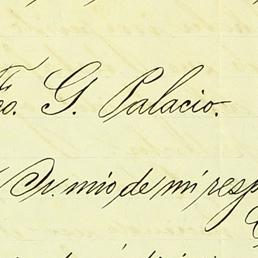 Fco. G. Palacio.
Sr. mio de mi resp